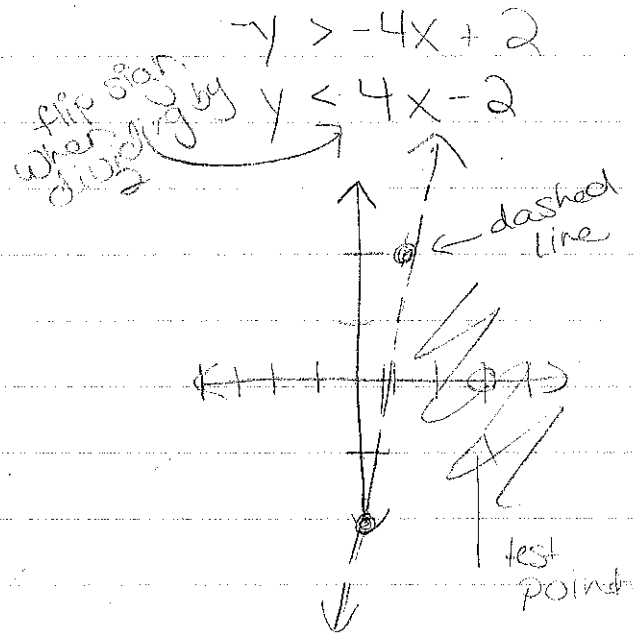 -y > -4x + 2
y < 4x - 2
flip sign
when
dividing by
2
dashed
line
test
point